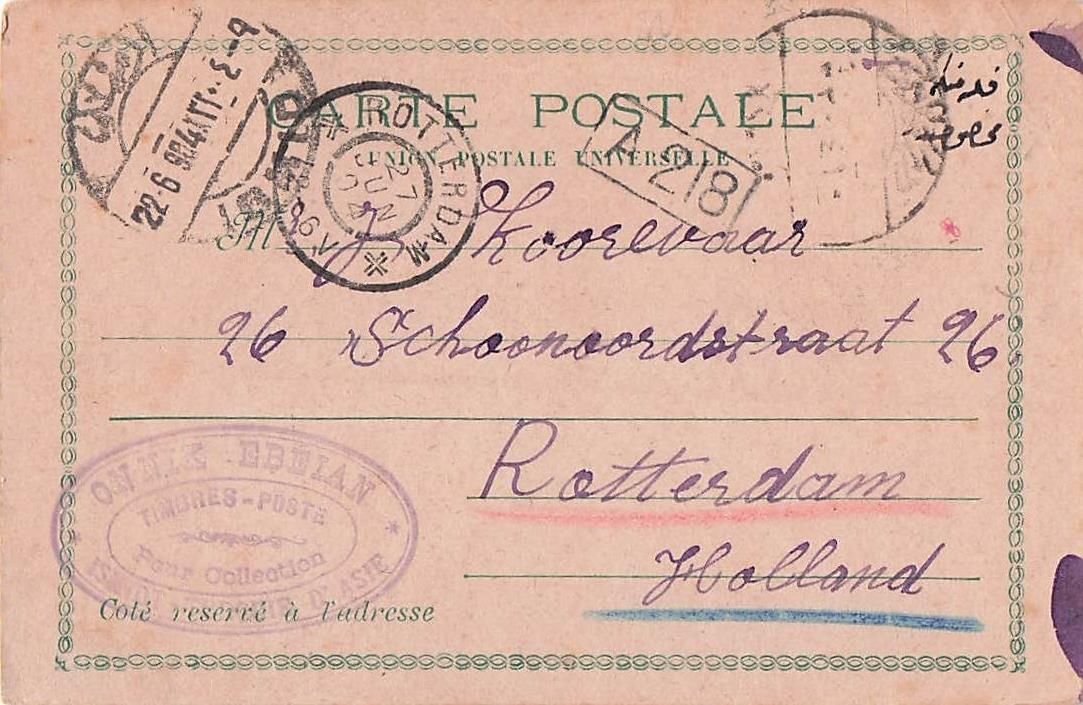 CARTE POSTALE
UNION POSTALE UNIVERSELLE
ROTTERDAM
27
JUN
22-6 904
A 218
M J. Koorevaar
26 Schoonoordstraat 26
Rotterdam
Holland
ONNIK EBEIAN
TIMBRES-POSTE
Pour Collection
D'ASIE
Coté reservé à l'adresse